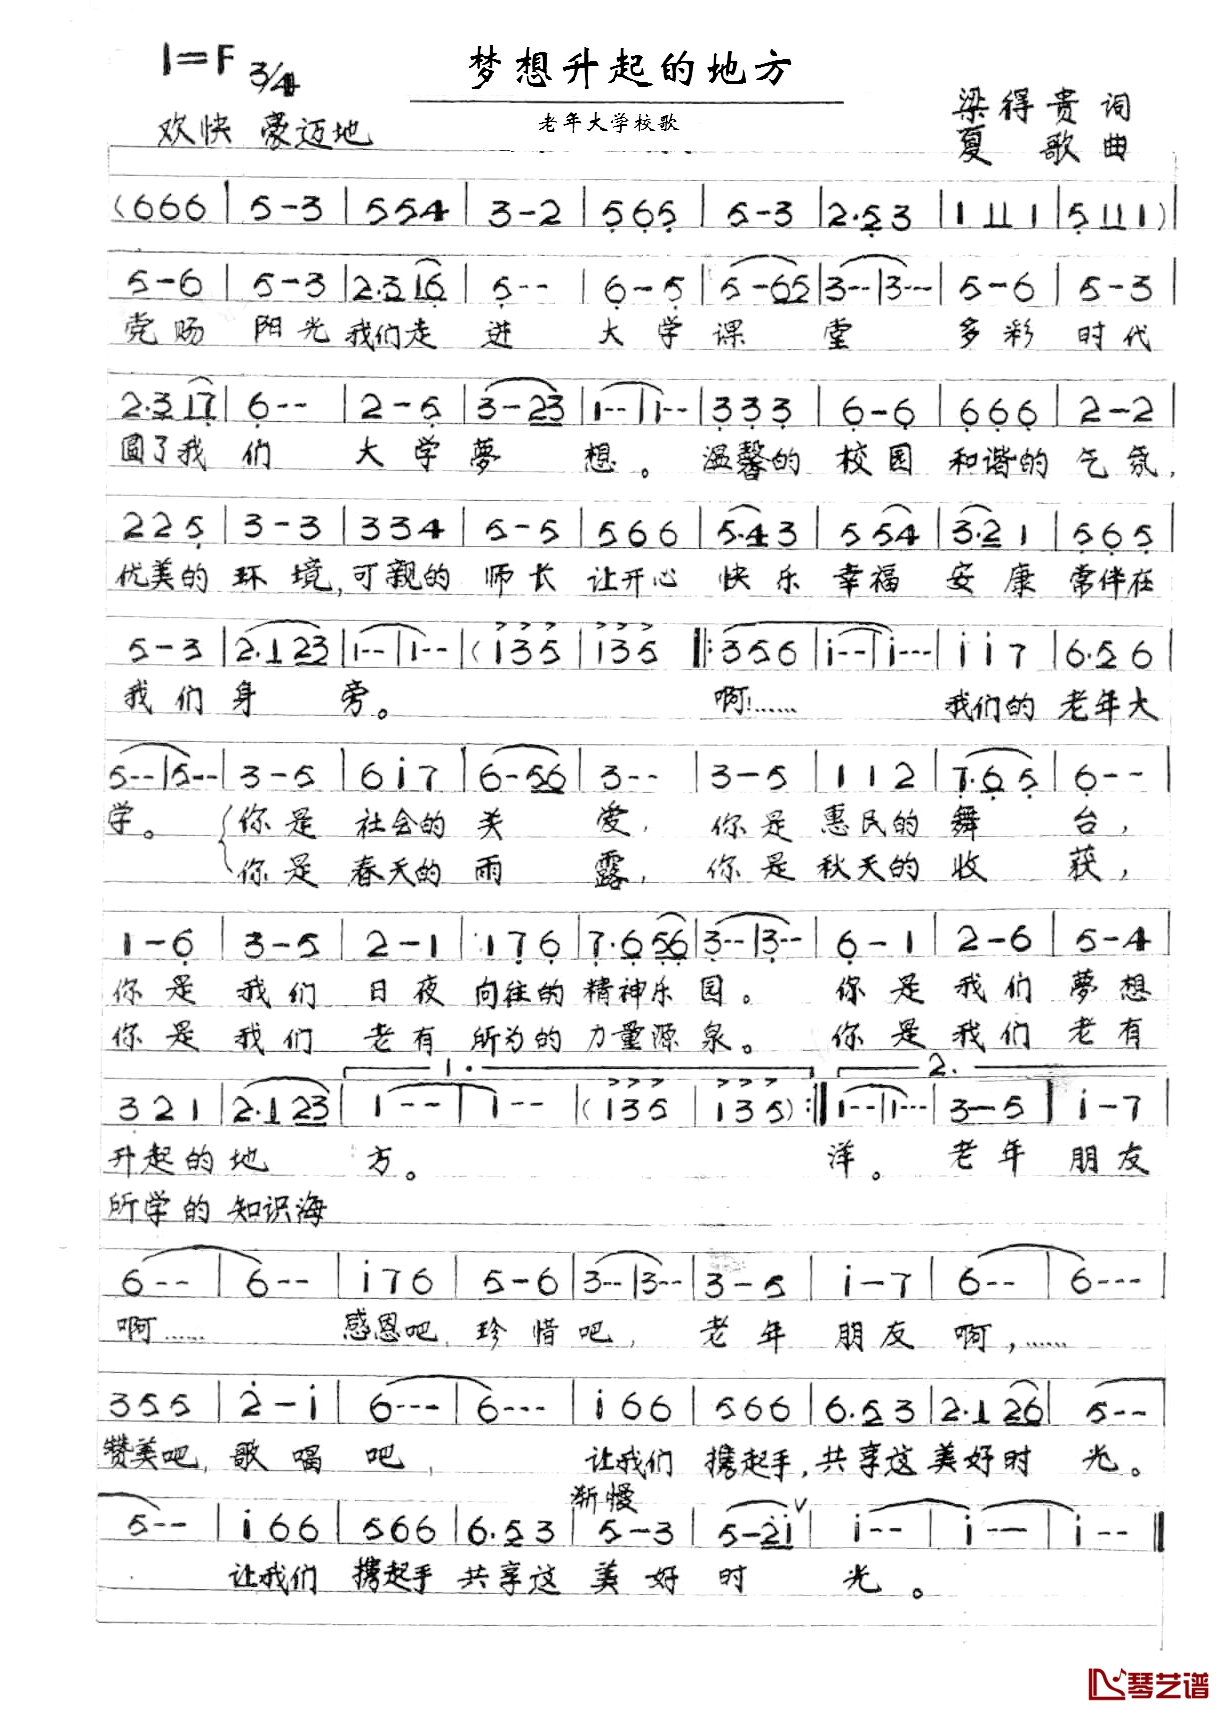 1=F 3/4
梦想升起的地方
老年大学校歌
欢快 豪迈地
梁得贵 词
夏 歌 曲
(666 | 5-3 | 554 | 3-2 | 565 | 5-3 | 2·53 | 1 11 1 | 5 11 1)|
5-6 | 5-3 | 2·316 | 5-- | 6-5 | 5-65 | 3-- | 3-- | 5-6 | 5-3 |
党赐 阳光 我们走 进 大学 课 堂 多彩 时代
2·317 | 6-- | 2-5 | 3-23 | 1-- | 1-- | 333 | 6-6 | 666 | 2-2 |
圆了我 们 大学 夢 想。 温馨的 校园 和谐的 气氛,
225 | 3-3 | 334 | 5-5 | 566 | 5·43 | 554 | 3·21 | 565 |
优美的 环境, 可亲的 师长 让开心 快乐 幸福 安康 常伴在
5-3 | 2·123 | 1-- | 1-- | (i35 | i35 ‖: 356 | i-- | i-- | ii7 | 6·56 |
我们 身 旁。 啊!…… 我们的 老年大
5-- | 5-- | 3-5 | 6i7 | 6-56 | 3-- | 3-5 | 112 | 7·65 | 6-- |
学。 你是 社会的 关 爱, 你是 惠民的 舞 台,
你是 春天的 雨 露, 你是 秋天的 收 获,
1-6 | 3-5 | 2-1 | 176 | 7·656 | 3-- | 3-- | 6-1 | 2-6 | 5-4
你是 我们 日夜 向往的 精神乐 园。 你是 我们 夢想
你是 我们 老有 所为的 力量源 泉。 你是 我们 老有
1. 2.
321 | 2·123 | 1-- | 1-- | (135 | 135) :‖ 1-- | 1-- | 3-5 | i-7 |
升起的 地 方。 洋。 老年 朋友
所学的 知识海
6-- | 6-- | i76 | 5-6 | 3-- | 3-- | 3-5 | i-7 | 6-- | 6--- |
啊…… 感恩吧, 珍惜吧, 老年 朋友 啊,……
355 | 2-i | 6--- | 6--- | i66 | 566 | 6·53 | 2·126 | 5-- |
赞美吧, 歌唱 吧, 让我们 携起手, 共享这 美好时 光。
渐慢
5-- | i66 | 566 | 6·53 | 5-3 | 5-2i ∨ | i-- | i-- | i-- ‖
让我们 携起手 共享这 美好 时 光。
琴艺谱